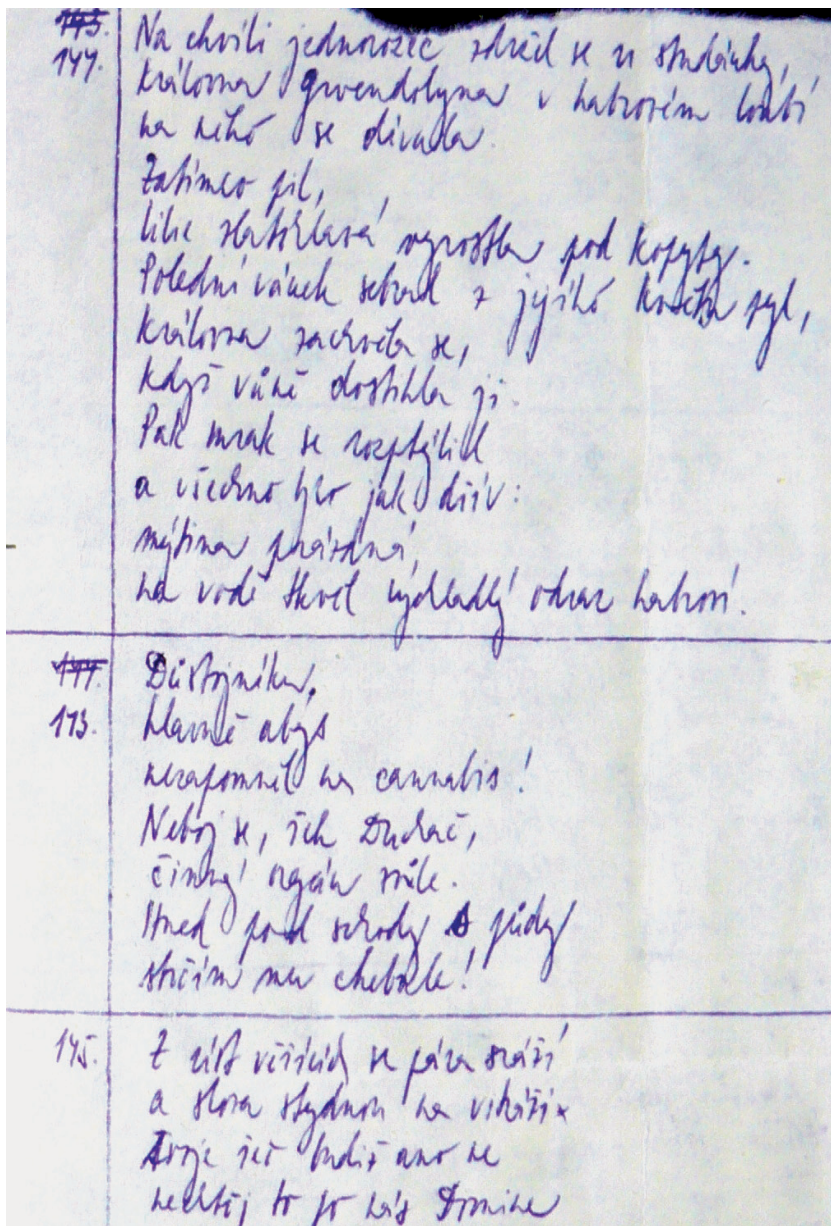 143.
144. Na chvíli jednorožec zdržel se u studánky,
královna Gwendolyna v habrovém loubí
na něho se dívala.
Zatímco pil,
lilie zlatohlavá vyrostla pod kopyty.
Polední vánek sebral z jejího květu pyl,
královna zachvěla se,
když vůně dostihla ji.
Pak mrak se rozptýlil
a všechno bylo jak dřív:
mýtina prázdná,
na vodě skvěl výdledlý odraz habroví.
144. Důstojníku,
143. hlavně abys
nezapomněl na cannabis!
Neboj se, řek Duchač,
činný orgán vůle.
Hned pod schody s půdy
strčím mu chebule!
145. Z úst věřících se pára sráží
a slova stydnou na vitráži
Tvoje řeč budiž ano ne
nechtěj to po nás Domine